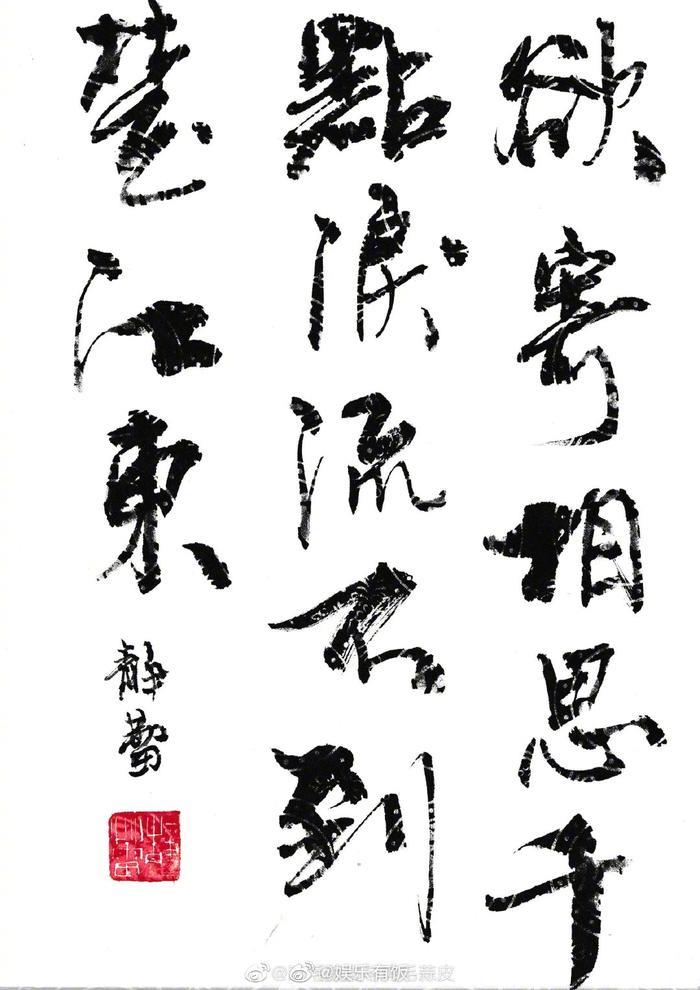 欲寄相思千
點淚流不到
楚江東
靜蕾
@娱乐有饭